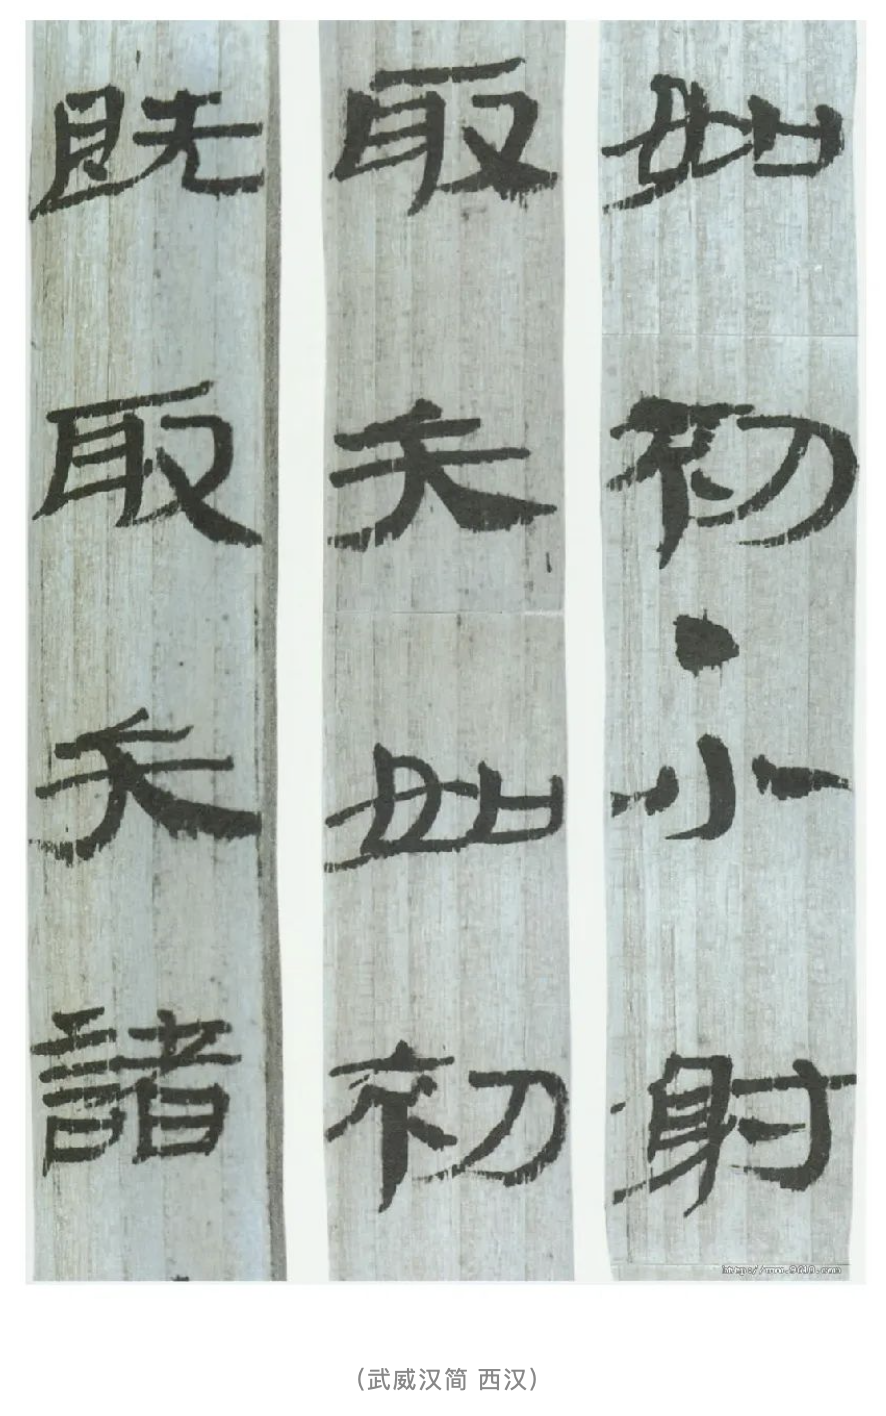 如初・小射
取矢如初
既取矢諸
（武威汉简 西汉）